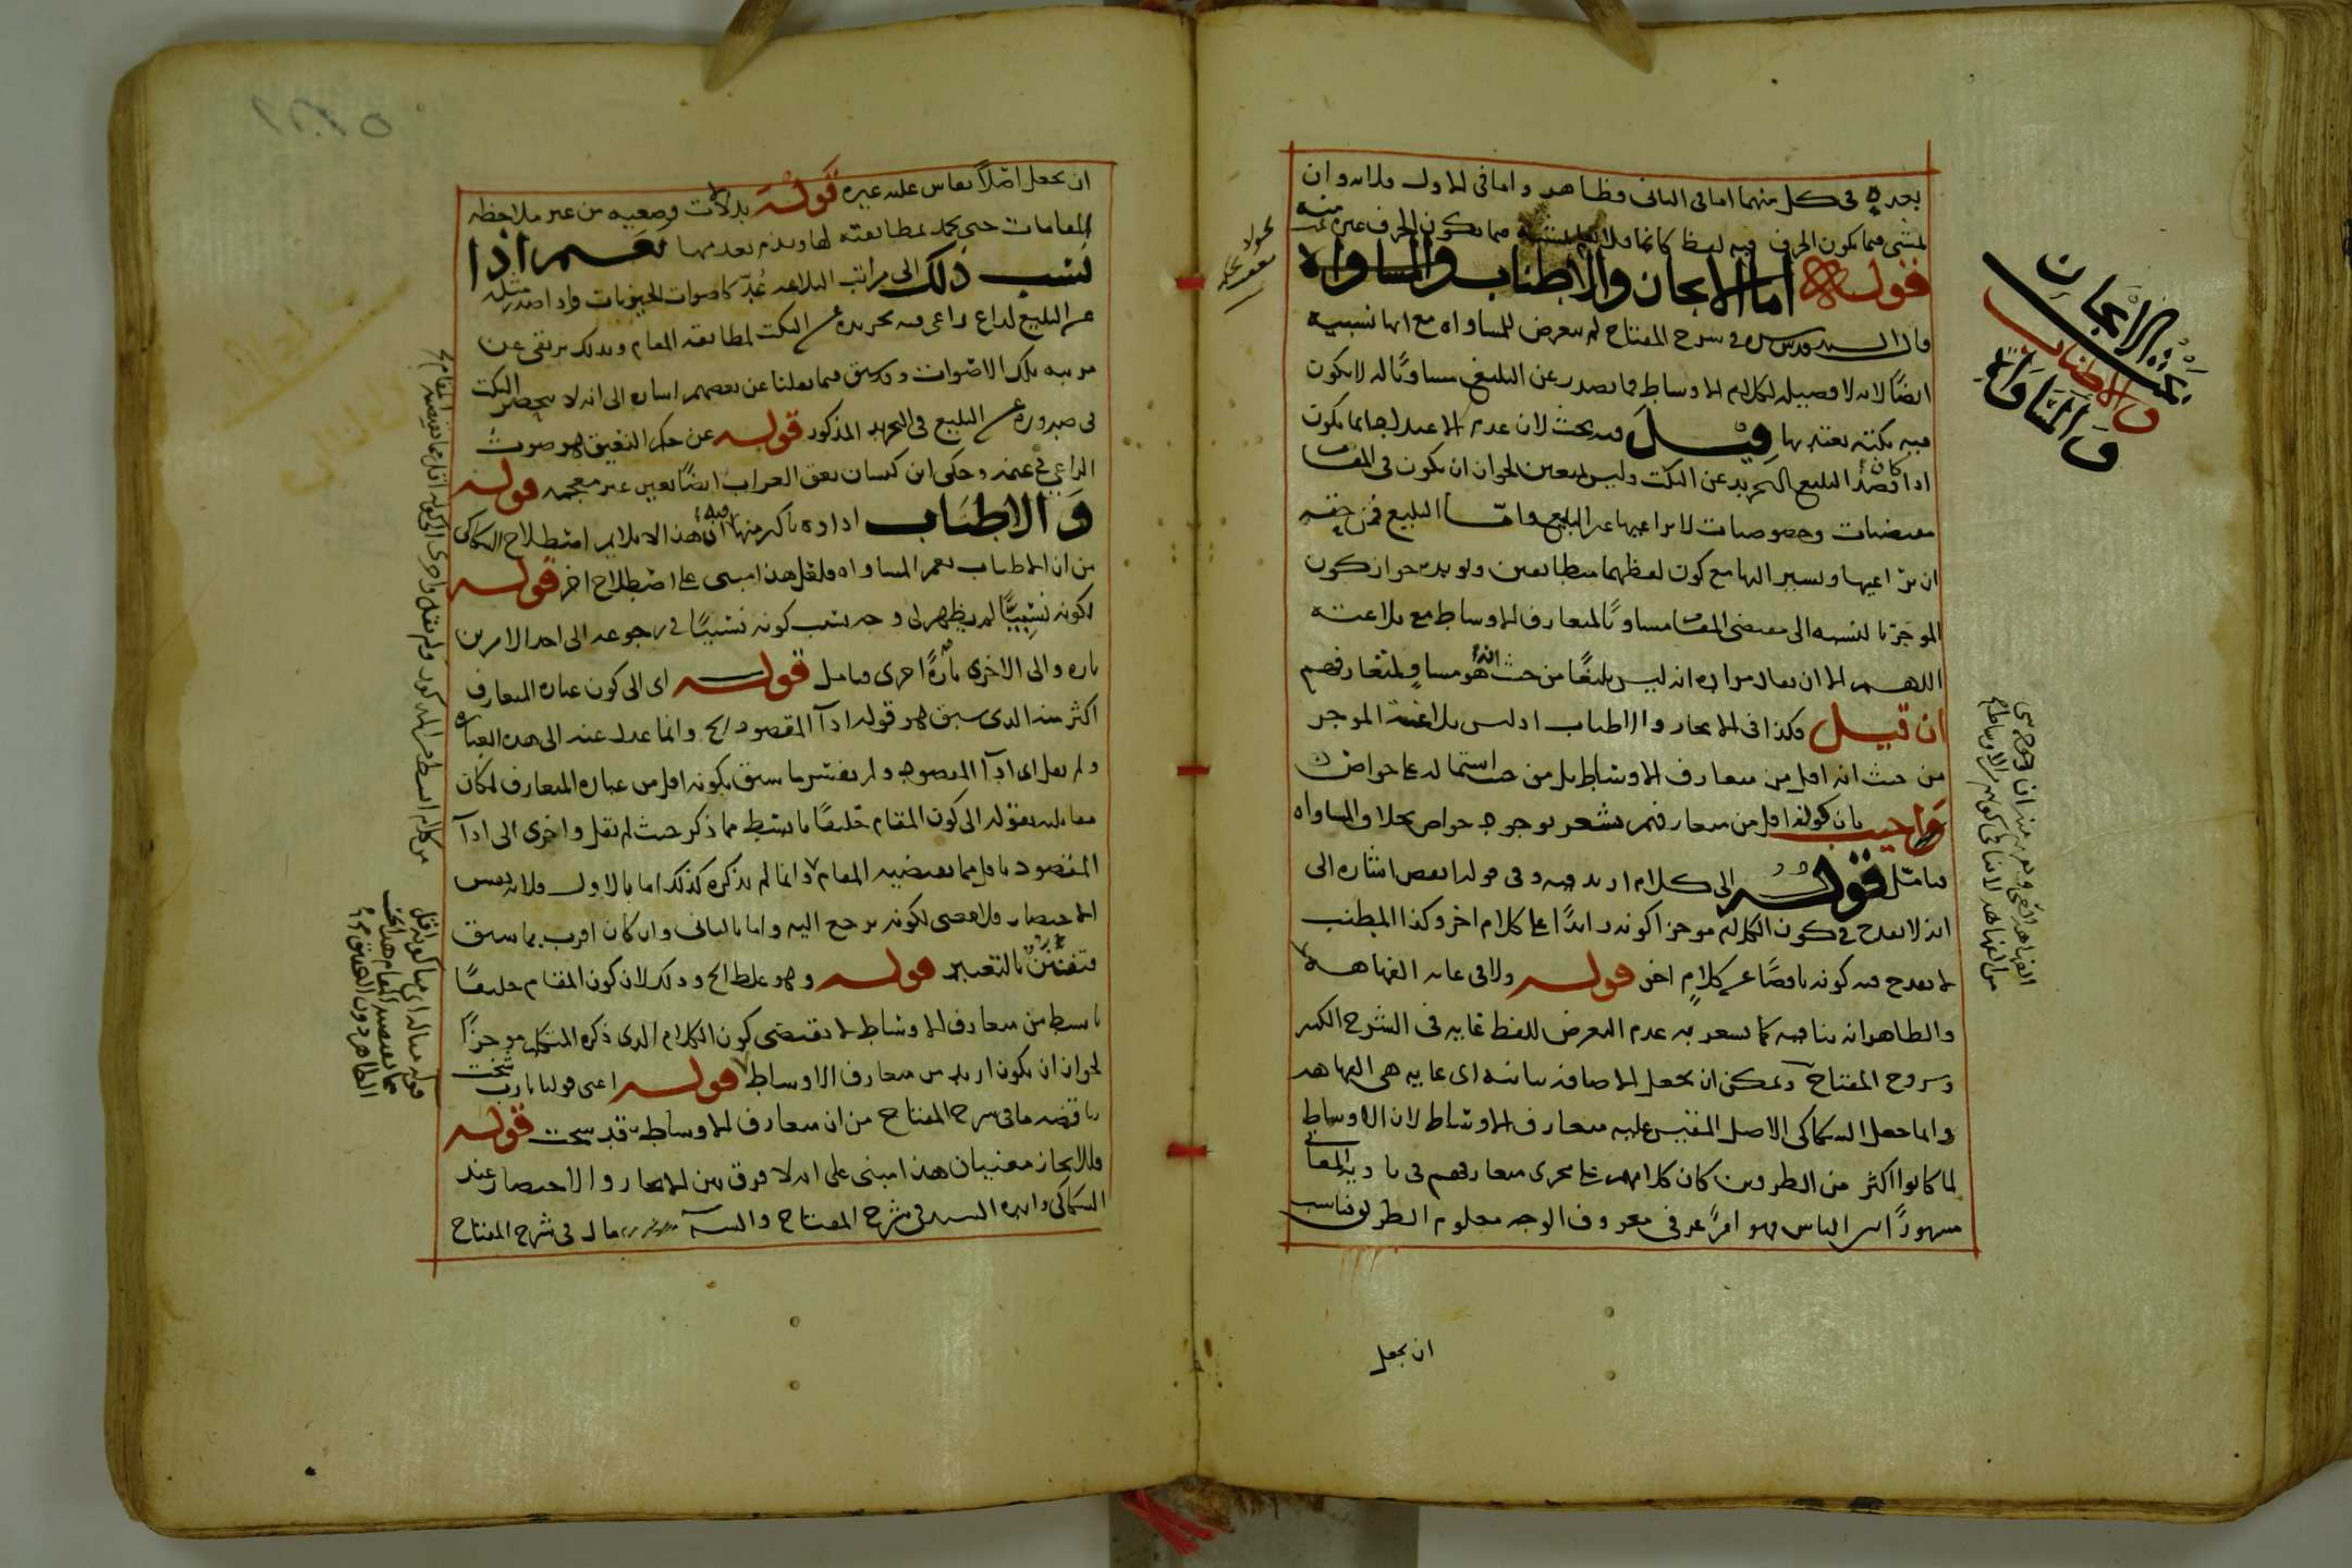 بعده في كل منهما اما في الثاني فظاهر واما في الاول فلانه وان
فيما يكون الحرف فيه لفظا كائنا فيما يكون الحرف غير
قوله اما الايجاز والاطناب والمساواة
قال السيد قدس سره في شرح المفتاح لم يتعرض للمساواة مع انها نسبية
ايضا لانه لا فضيلة لكلام الاوساط فما يصدر عن البليغ مساويا له لا يكون
فيه نكتة يعتد بها قيل فيه بحث لان عدم الاعتداد انما يكون
اذا كان قصد البليغ التجريد عن النكت وليس بمتعين لجواز ان يكون في المقام
مقتضيات وخصوصيات لا يراعيها غير البليغ واما البليغ فمن حقه
ان يراعيها ويشير اليها مع كون لفظهما متطابقين ويؤيده جواز كون
الموجز بالنسبة الى مقتضى المقام مساويا لمتعارف الاوساط مع بلاغته
اللهم الا ان يقال مراده انه ليس بليغا من حيث انه هو مساو لمتعارفهم
ان قيل فكذا في الايجاز والاطناب اذ ليس بلاغة الموجز
من حيث انه اقل من متعارف الاوساط بل من حيث اشتماله على خواص
واجيب بان كونه اقل من متعارفهم يشعر بوجود خواص بخلاف المساواة
فتامل قوله الى كلام ازيد فيه وفي قوله انقص اشارة الى
انه لا يقدح في كون الكلام موجزا كونه زائدا على كلام اخر وكذا المطنب
لا يقدح فيه كونه ناقصا عن كلام اخر قوله ولا في غاية الفهاهة
والظاهر انه ينافيه كما يشعر به عدم التعرض للفظ غاية في الشرح الكبير
وشروح المفتاح ويمكن ان يجعل الاضافة بيانية اي غاية هي الفهاهة
وانما جعل السكاكي الاصل المقيس عليه متعارف الاوساط لان الاوساط
لما كانوا اكثر من الطرفين كان كلامهم على مجرى متعارفهم في تادية المعاني
مشهورا بين الناس فهو امر عرفي معروف الوجه معلوم الطريق فناسب
ان يجعل
بحث الايجاز
والاطناب
والمساواة
ان يجعل اصلا يقاس عليه غيره قوله بدلالات وضعية من غير ملاحظة
المقامات حتى يحمد لمطابقته لها ويذم بعدمها نعم اذا
نسب ذلك الى مراتب البلاغة عد كاصوات الحيوانات واذا اصدر مثله
عن البليغ لداع راعى فيه تجريده عن النكت لمطابقة المقام وبذلك يرتقي عن
مرتبة تلك الاصوات وقد سبق فيما نقلنا عن بعضهم اشارة الى انه لا ينحصر النكت
في صدوره عن البليغ في التجريد المذكور قوله عن حكم النعيق هو صوت
الراعي في غنمه وحكى ابن كيسان نعق الغراب ايضا بعين غير معجمة قوله
والاطناب اداؤه باكثر منها فيه ان هذا لا يلايم اصطلاح السكاكي
من ان الاطناب يعم المساواة فلعل هذا مبنى على اصطلاح اخر قوله
لكونه نسبيا لم يظهر لي وجه تسبب كونه نسبيا في رجوعه الى احد الامرين
تارة والى الاخرى تارة اخرى فتامل قوله اي الى كون عبارة المتعارف
اكثر منه الذي سبق هو قوله اداء المقصود الخ وانما عدل عنه الى هذه العبارة
ولم يقل اي اداء المقصود ولم يفسر ما سبق بكونه اقل من عبارة المتعارف لمكان
مقابلته بقوله الى كون المقام خليقا بابسط مما ذكر حيث لم يقل واخرى الى اداء
المقصود باقل مما يقتضيه المقام وانما لم يذكره كذلك اما بالاول فلانه نفس
الاختصار فلا معنى لكونه يرجع اليه واما بالثاني وان كان اقرب بما سبق
فتفنن بالتعبير قوله وهو غلط الخ وذلك لان كون المقام خليقا
بابسط من متعارف الاوساط لا يقتضى كون الكلام الذي ذكره المتكلم موجزا
لجواز ان يكون ازيد من متعارف الاوساط قوله اعني قولنا يا رب شخت
يناقضه ما في شرح المفتاح من ان متعارف الاوساط قد شخت قوله
فللايجاز معنيان هذا مبنى على انه لا فرق بين الايجاز والاختصار عند
السكاكي وايده السيد في شرح المفتاح والسيد قال في شرح المفتاح